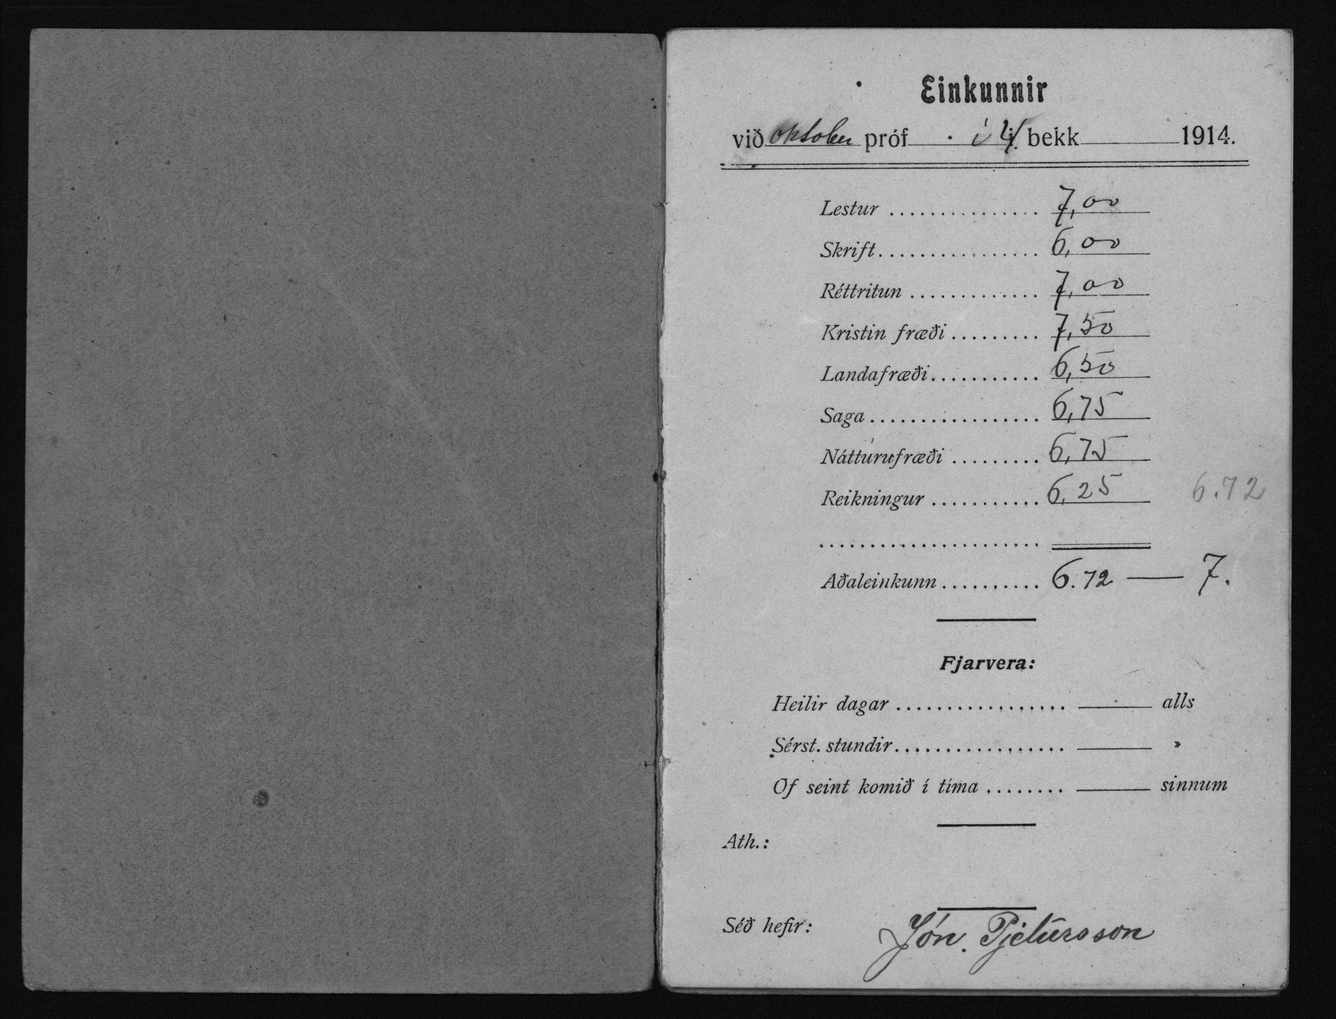 Einkunnir
við oktober próf í 4. bekk 1914.
Lestur .................. 7,00
Skrift .................. 6,00
Réttritun .................. 7,00
Kristin fræði .................. 7,50
Landafræði .................. 6,50
Saga .................. 6,75
Náttúrufræði .................. 6,75
Reikningur .................. 6,25 6.72
Aðaleinkunn .................. 6.72 — 7.
Fjarvera:
Heilir dagar .................. alls
Sérst. stundir .................. »
Of seint komið í tíma ........ sinnum
Ath.:
Séð hefir: Jón Pjetursson